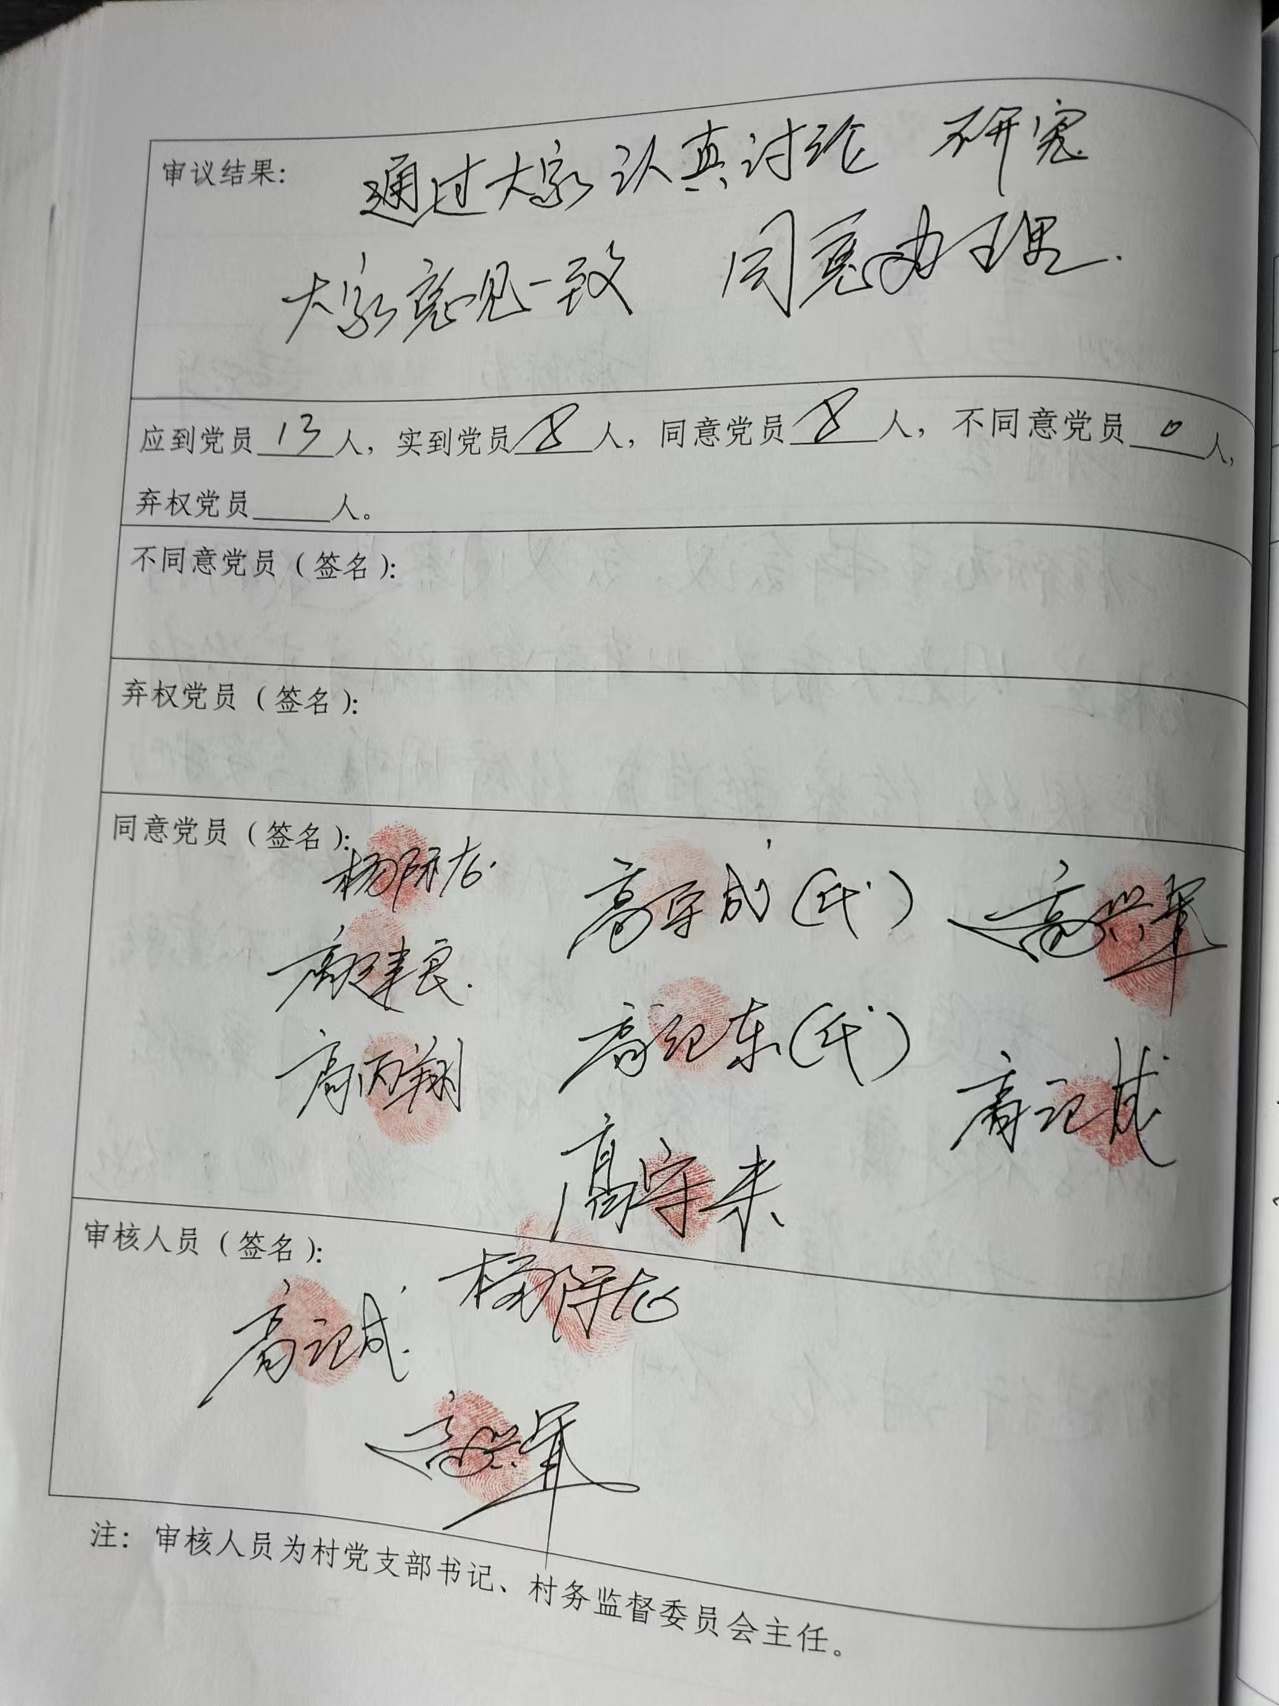 审议结果：通过大家认真讨论 研究
大家意见一致 同意办理.
应到党员13人，实到党员8人，同意党员8人，不同意党员0人，
弃权党员____人。
不同意党员（签名）：
弃权党员（签名）：
同意党员（签名）：
高守成（代） 高兴军
高建良.
高记东（代）
高丙翔 高记成
高守来
审核人员（签名）：
高记成.
高兴军
注：审核人员为村党支部书记、村务监督委员会主任。